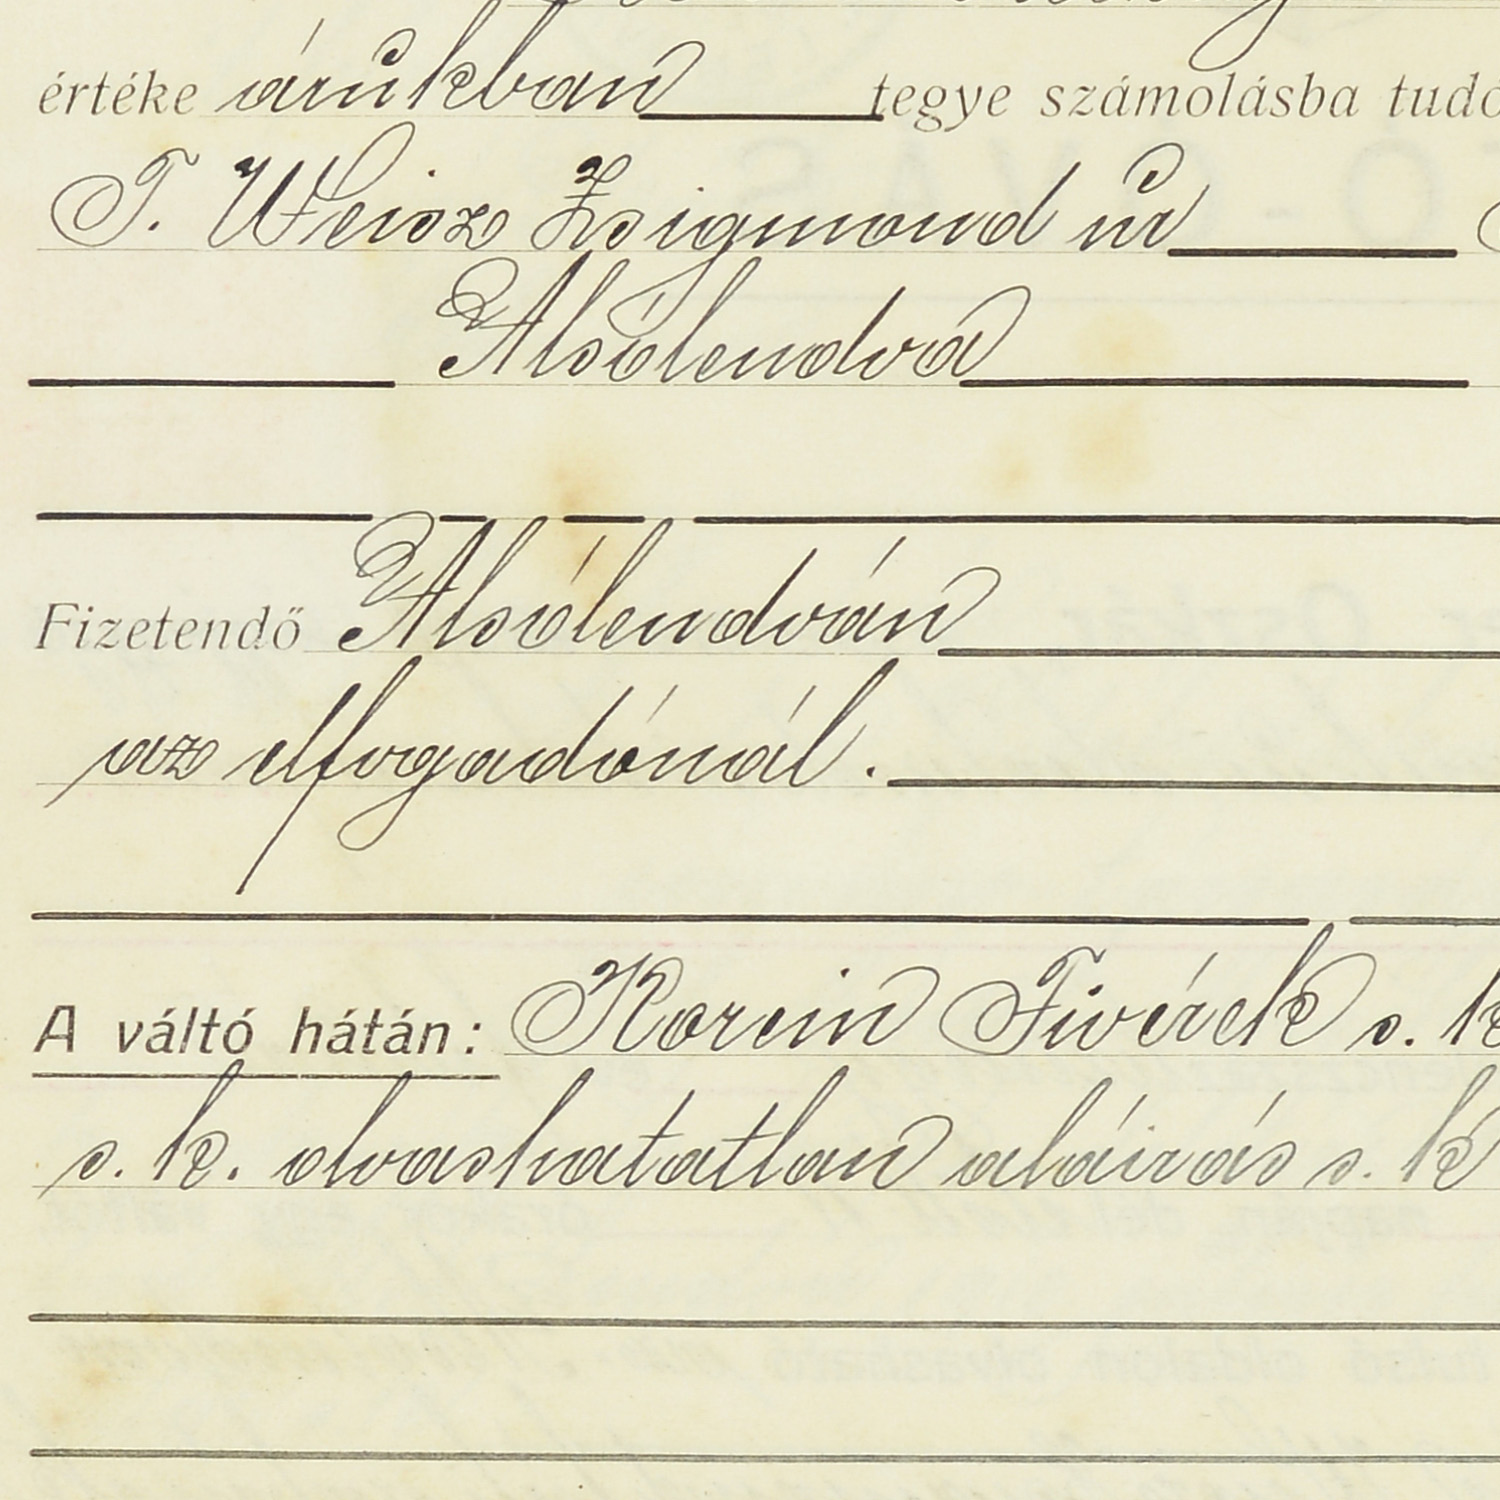 értéke árukban tegye számolásba
T. Weisz Zsigmond úr
Alsólendva
Fizetendő Alsólendván
az elfogadónál.
A váltó hátán: Korein Tivérek s. k
s. k. olvashatatlan aláirás s. k